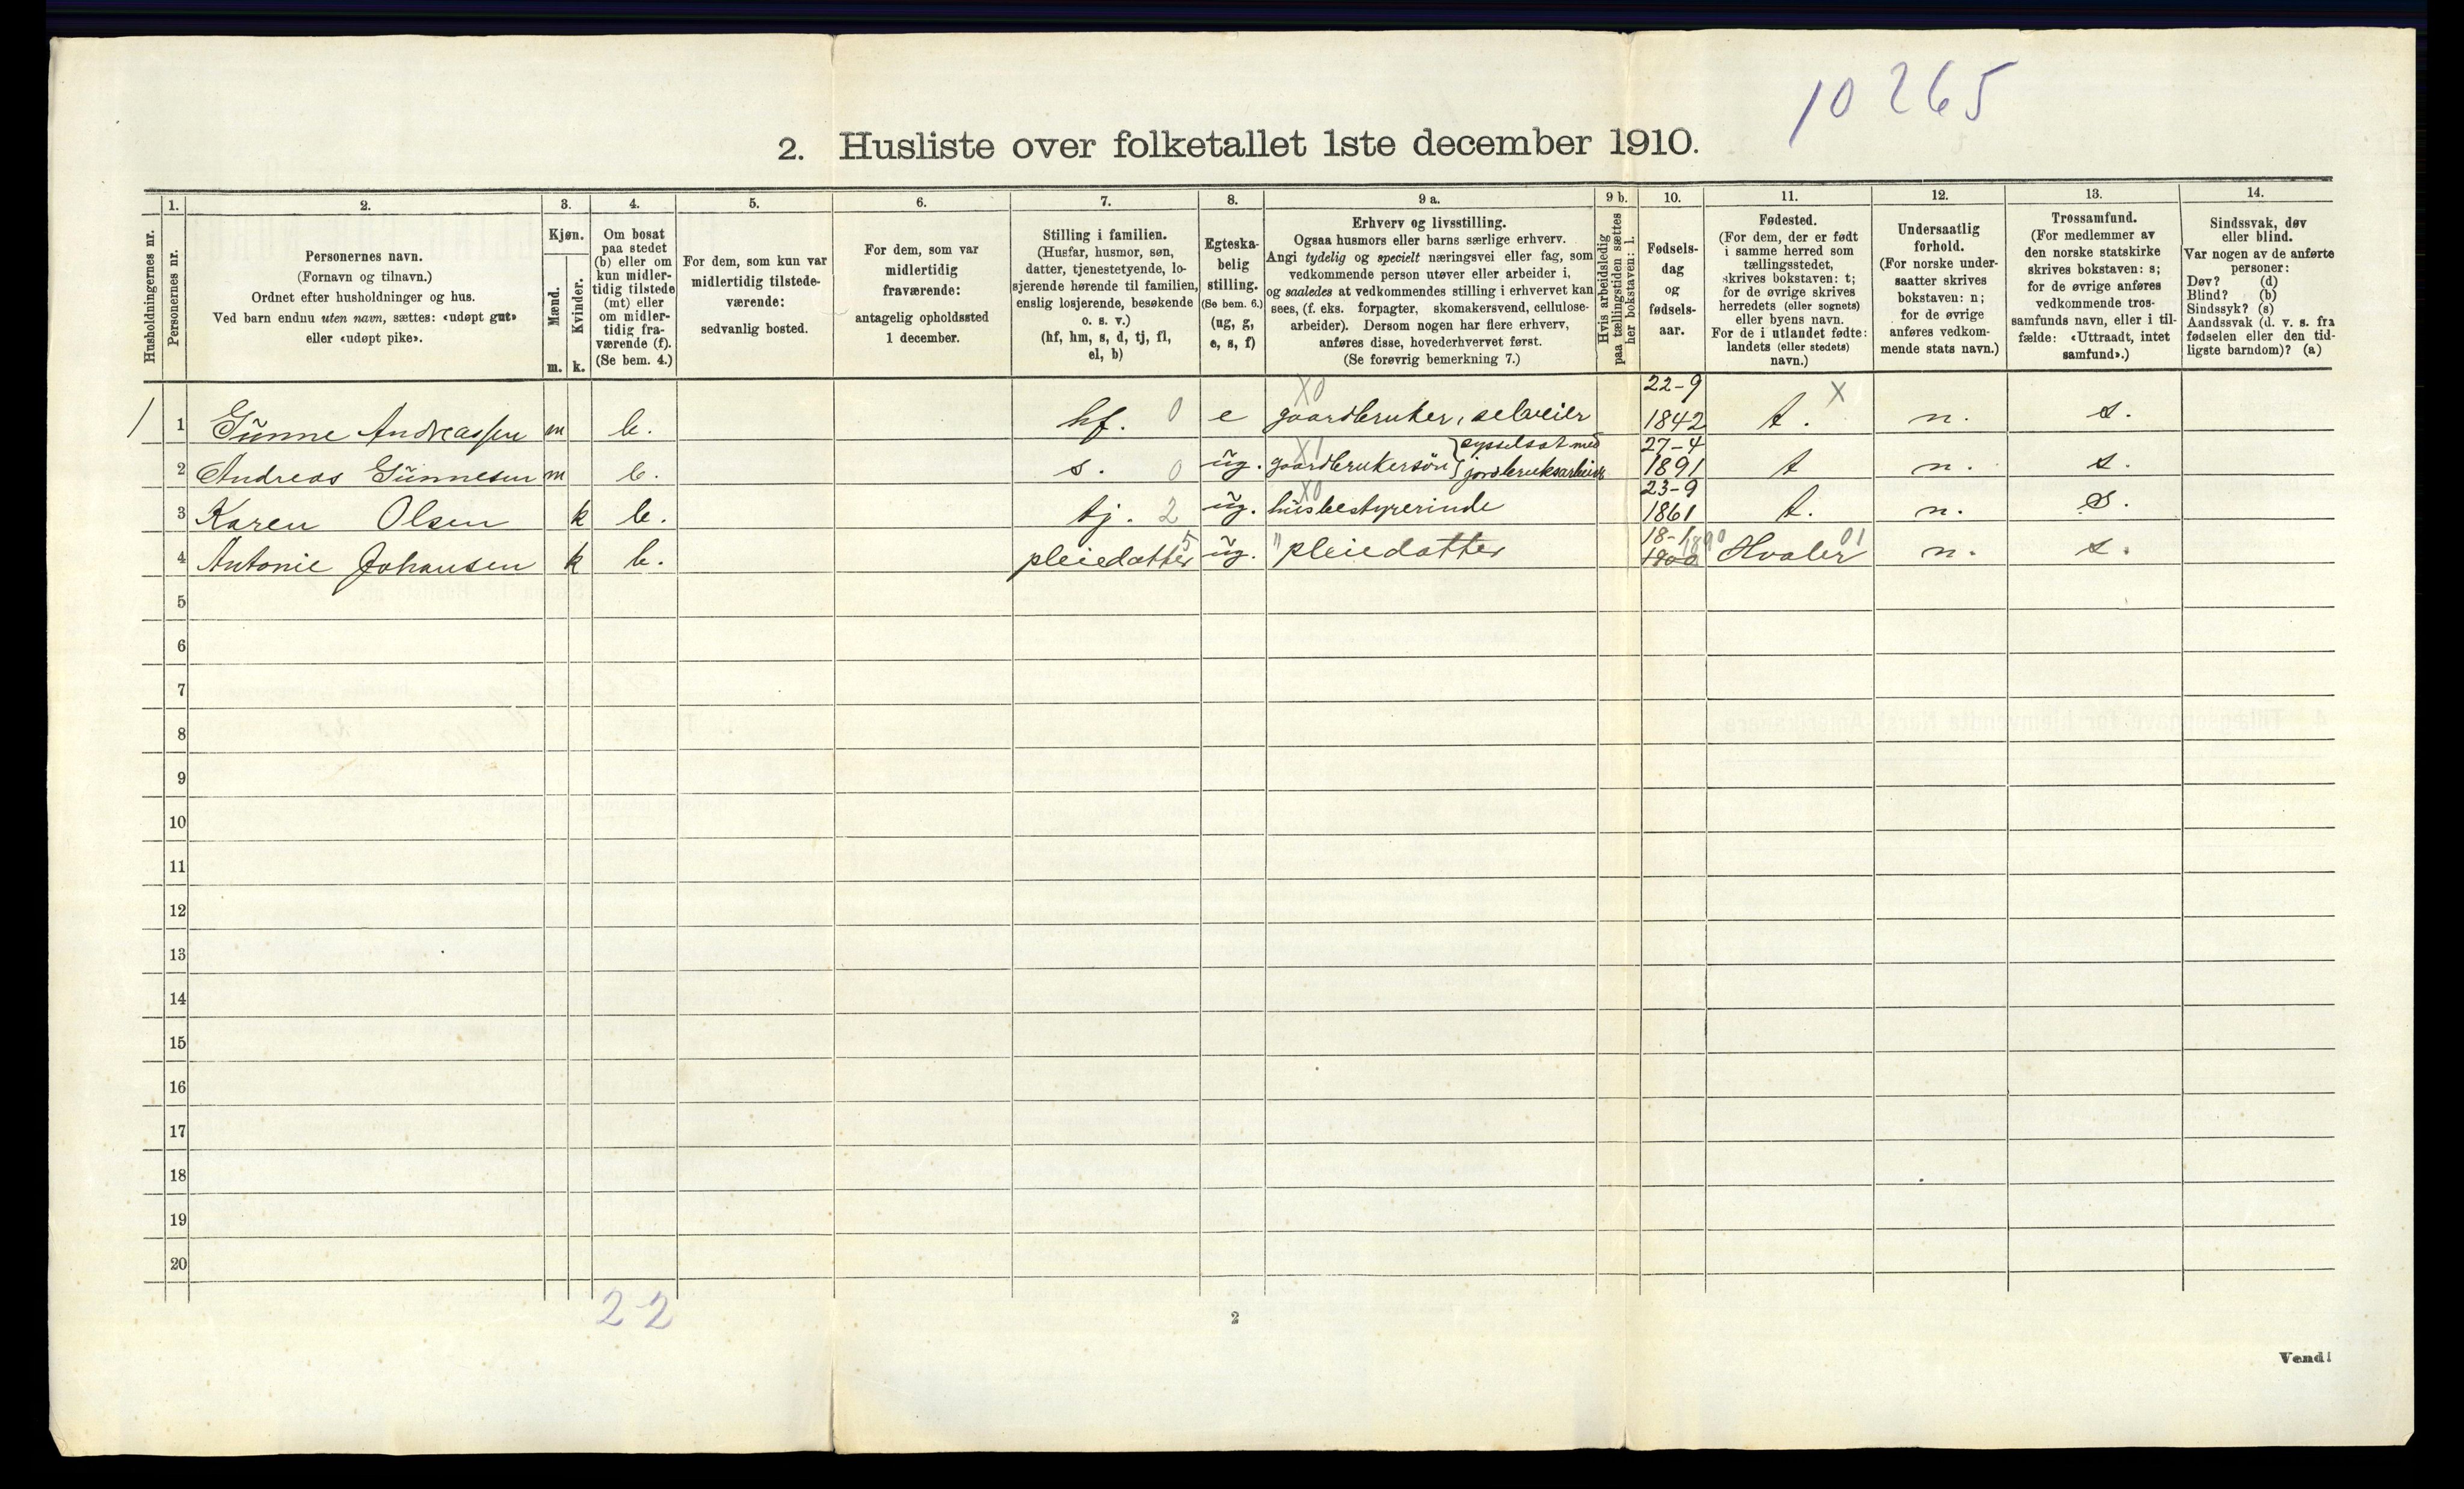 10265
2. Husliste over folketallet 1ste december 1910.
Husholdningernes nr.
1.
Personernes nr.
2.
Personernes navn.
(Fornavn og tilnavn.)
Ordnet efter husholdninger og hus.
Ved barn endnu uten navn, sættes: «udøpt gut»
eller «udøpt pike».
3.
Kjøn.
Mænd.
Kvinder.
m. k.
4.
Om bosat
paa stedet
(b) eller om
kun midler-
tidig tilstede
(mt) eller
om midler-
tidig fra-
værende (f).
(Se bem. 4.)
5.
For dem, som kun var
midlertidig tilstede-
værende:
sedvanlig bosted.
6.
For dem, som var
midlertidig
fraværende:
antagelig opholdssted
1 december.
7.
Stilling i familien.
(Husfar, husmor, søn,
datter, tjenestetyende, lo-
sjerende hørende til familien,
enslig losjerende, besøkende
o. s. v.)
(hf, hm, s, d, tj, fl,
el, b)
8.
Egteska-
belig
stilling.
(Se bem. 6.)
(ug, g,
e, s, f)
9 a.
Erhverv og livsstilling.
Ogsaa husmors eller barns særlige erhverv.
Angi tydelig og specielt næringsvei eller fag, som
vedkommende person utøver eller arbeider i,
og saaledes at vedkommendes stilling i erhvervet kan
sees, (f. eks. forpagter, skomakersvend, cellulose-
arbeider). Dersom nogen har flere erhverv,
anføres disse, hovederhvervet først.
(Se forøvrig bemerkning 7.)
9 b.
Hvis arbeidsledig
paa tællingstiden sættes
her bokstaven: l.
10.
Fødsels-
dag
og
fødsels-
aar.
11.
Fødested.
(For dem, der er født
i samme herred som
tællingsstedet,
skrives bokstaven: t;
for de øvrige skrives
herredets (eller sognets)
eller byens navn.
For de i utlandet fødte:
landets (eller stedets)
navn.)
12.
Undersaatlig
forhold.
(For norske under-
saatter skrives
bokstaven: n;
for de øvrige
anføres vedkom-
mende stats navn.)
13.
Trossamfund.
(For medlemmer av
den norske statskirke
skrives bokstaven: s;
for de øvrige anføres
vedkommende tros-
samfunds navn, eller i til-
fælde: «Uttraadt, intet
samfund».)
14.
Sindssvak, døv
eller blind.
Var nogen av de anførte
personer:
Døv? (d)
Blind? (b)
Sindssyk? (s)
Aandssvak (d. v. s. fra
fødselen eller den tid-
ligste barndom)? (a)
X0 22-9 X
1 Gunne Andreassen m b. hf. 0 e gaardbruker, selveier 1842 t. n. s.
X1 sysselsat med 27-4
2 Andreas Gunnesen m b. s. 0 ug. gaardbrukersøn jordbruksarbeide 1891 t n. s.
X0 23-9
3 Karen Olsen k b. tj. 2 ug. husbestyrerinde 1861 t. n. s.
5 18-1 1890 01
4 Antonie Johansen k b. pleiedatter ug. " pleiedatter 1900 Hvaler n. s.
5
6
7
8
9
10
11
12
13
14
15
16
17
18
19
20
2-2
2
Vend!